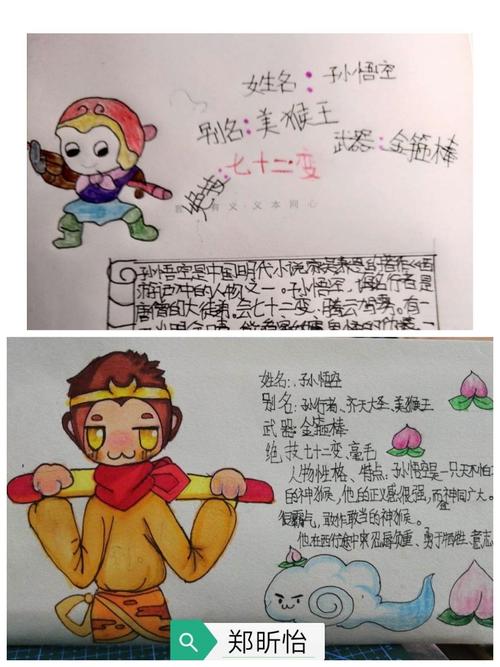 女生名：孙悟空
别名：美猴王
武器：金箍棒
绝技：七十二变
有义·义本同心
孙悟空是中国明代小说家吴承恩的著作《西
游记》中的人物之一。孙悟空，
唐僧的大徒弟。会七十二变、腾云驾雾。有一
姓名：孙悟空
别名：孙行者、齐天大圣、美猴王
武器：金箍棒
绝技：七十二变、毫毛
人物性格、特点：孙悟空是一只天不怕
的神猴，他的正义感很强，而神间广大。
很霸气，敢作敢当的神猴。
他在西行途中忍辱负重、勇于牺牲、意志
郑昕怡